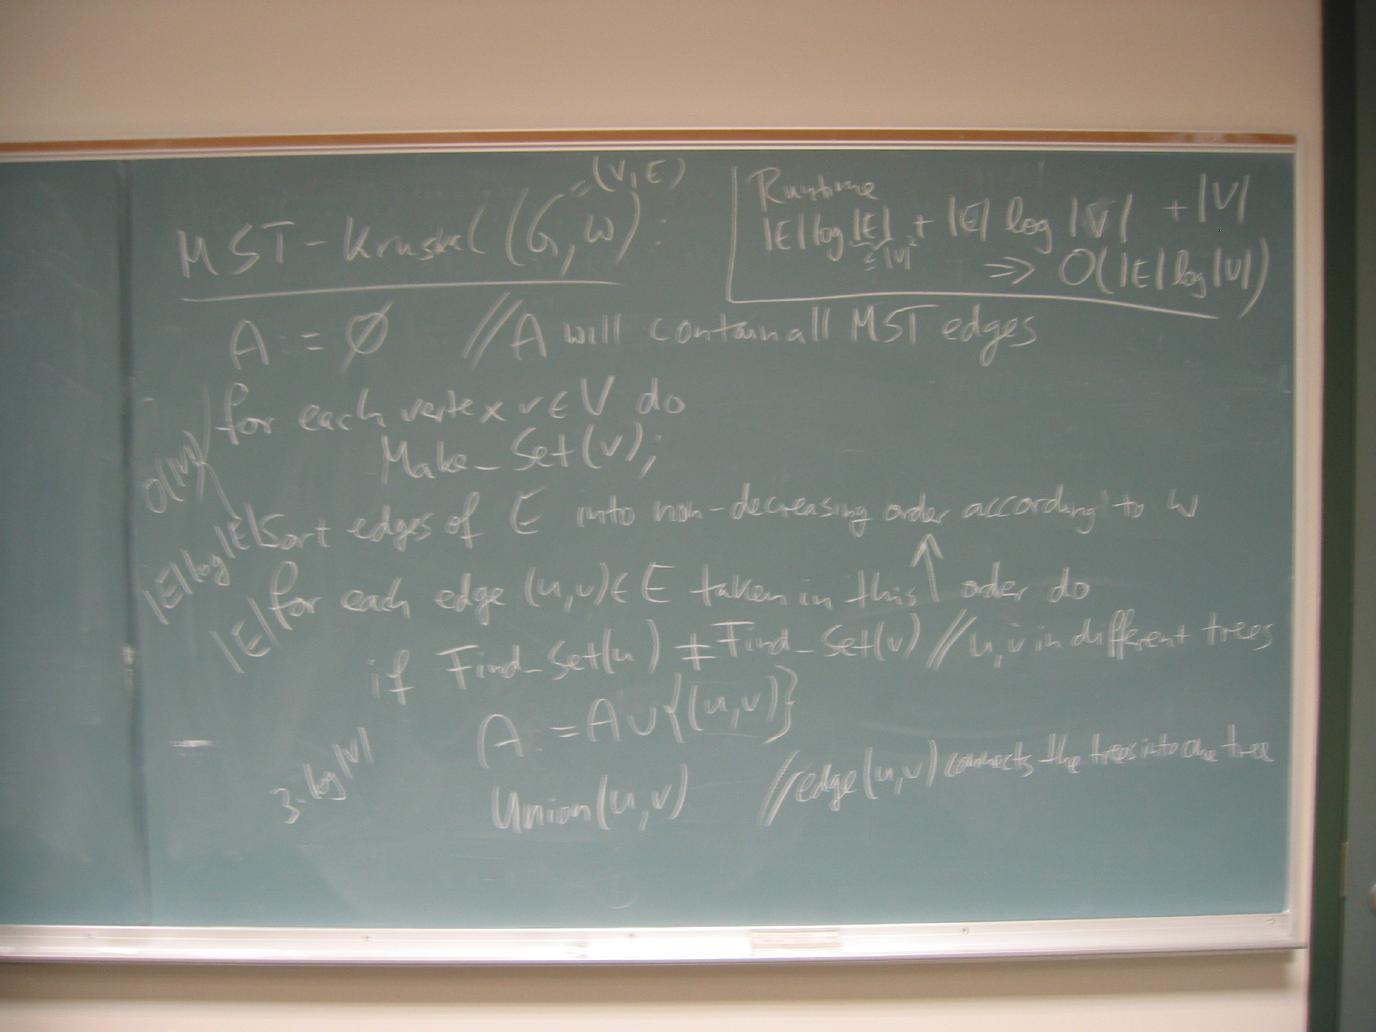 MST-Kruskal(G,w):
=(V,E)
Runtime
|E|log|E| + |E| log |V| + |V|
≤|V|²
⇒ O(|E|log|V|)
A := ∅ //A will contain all MST edges
for each vertex v∈V do
O(|V|)
Make_Set(v);
|E|log|E| Sort edges of E into non-decreasing order according to w
|E| for each edge (u,v)∈E taken in this ↑ order do
if Find_Set(u) ≠ Find_Set(v) //u,v in different trees
A := A∪{(u,v)}
3·log|V|
Union(u,v) //edge(u,v) connects the trees into one tree